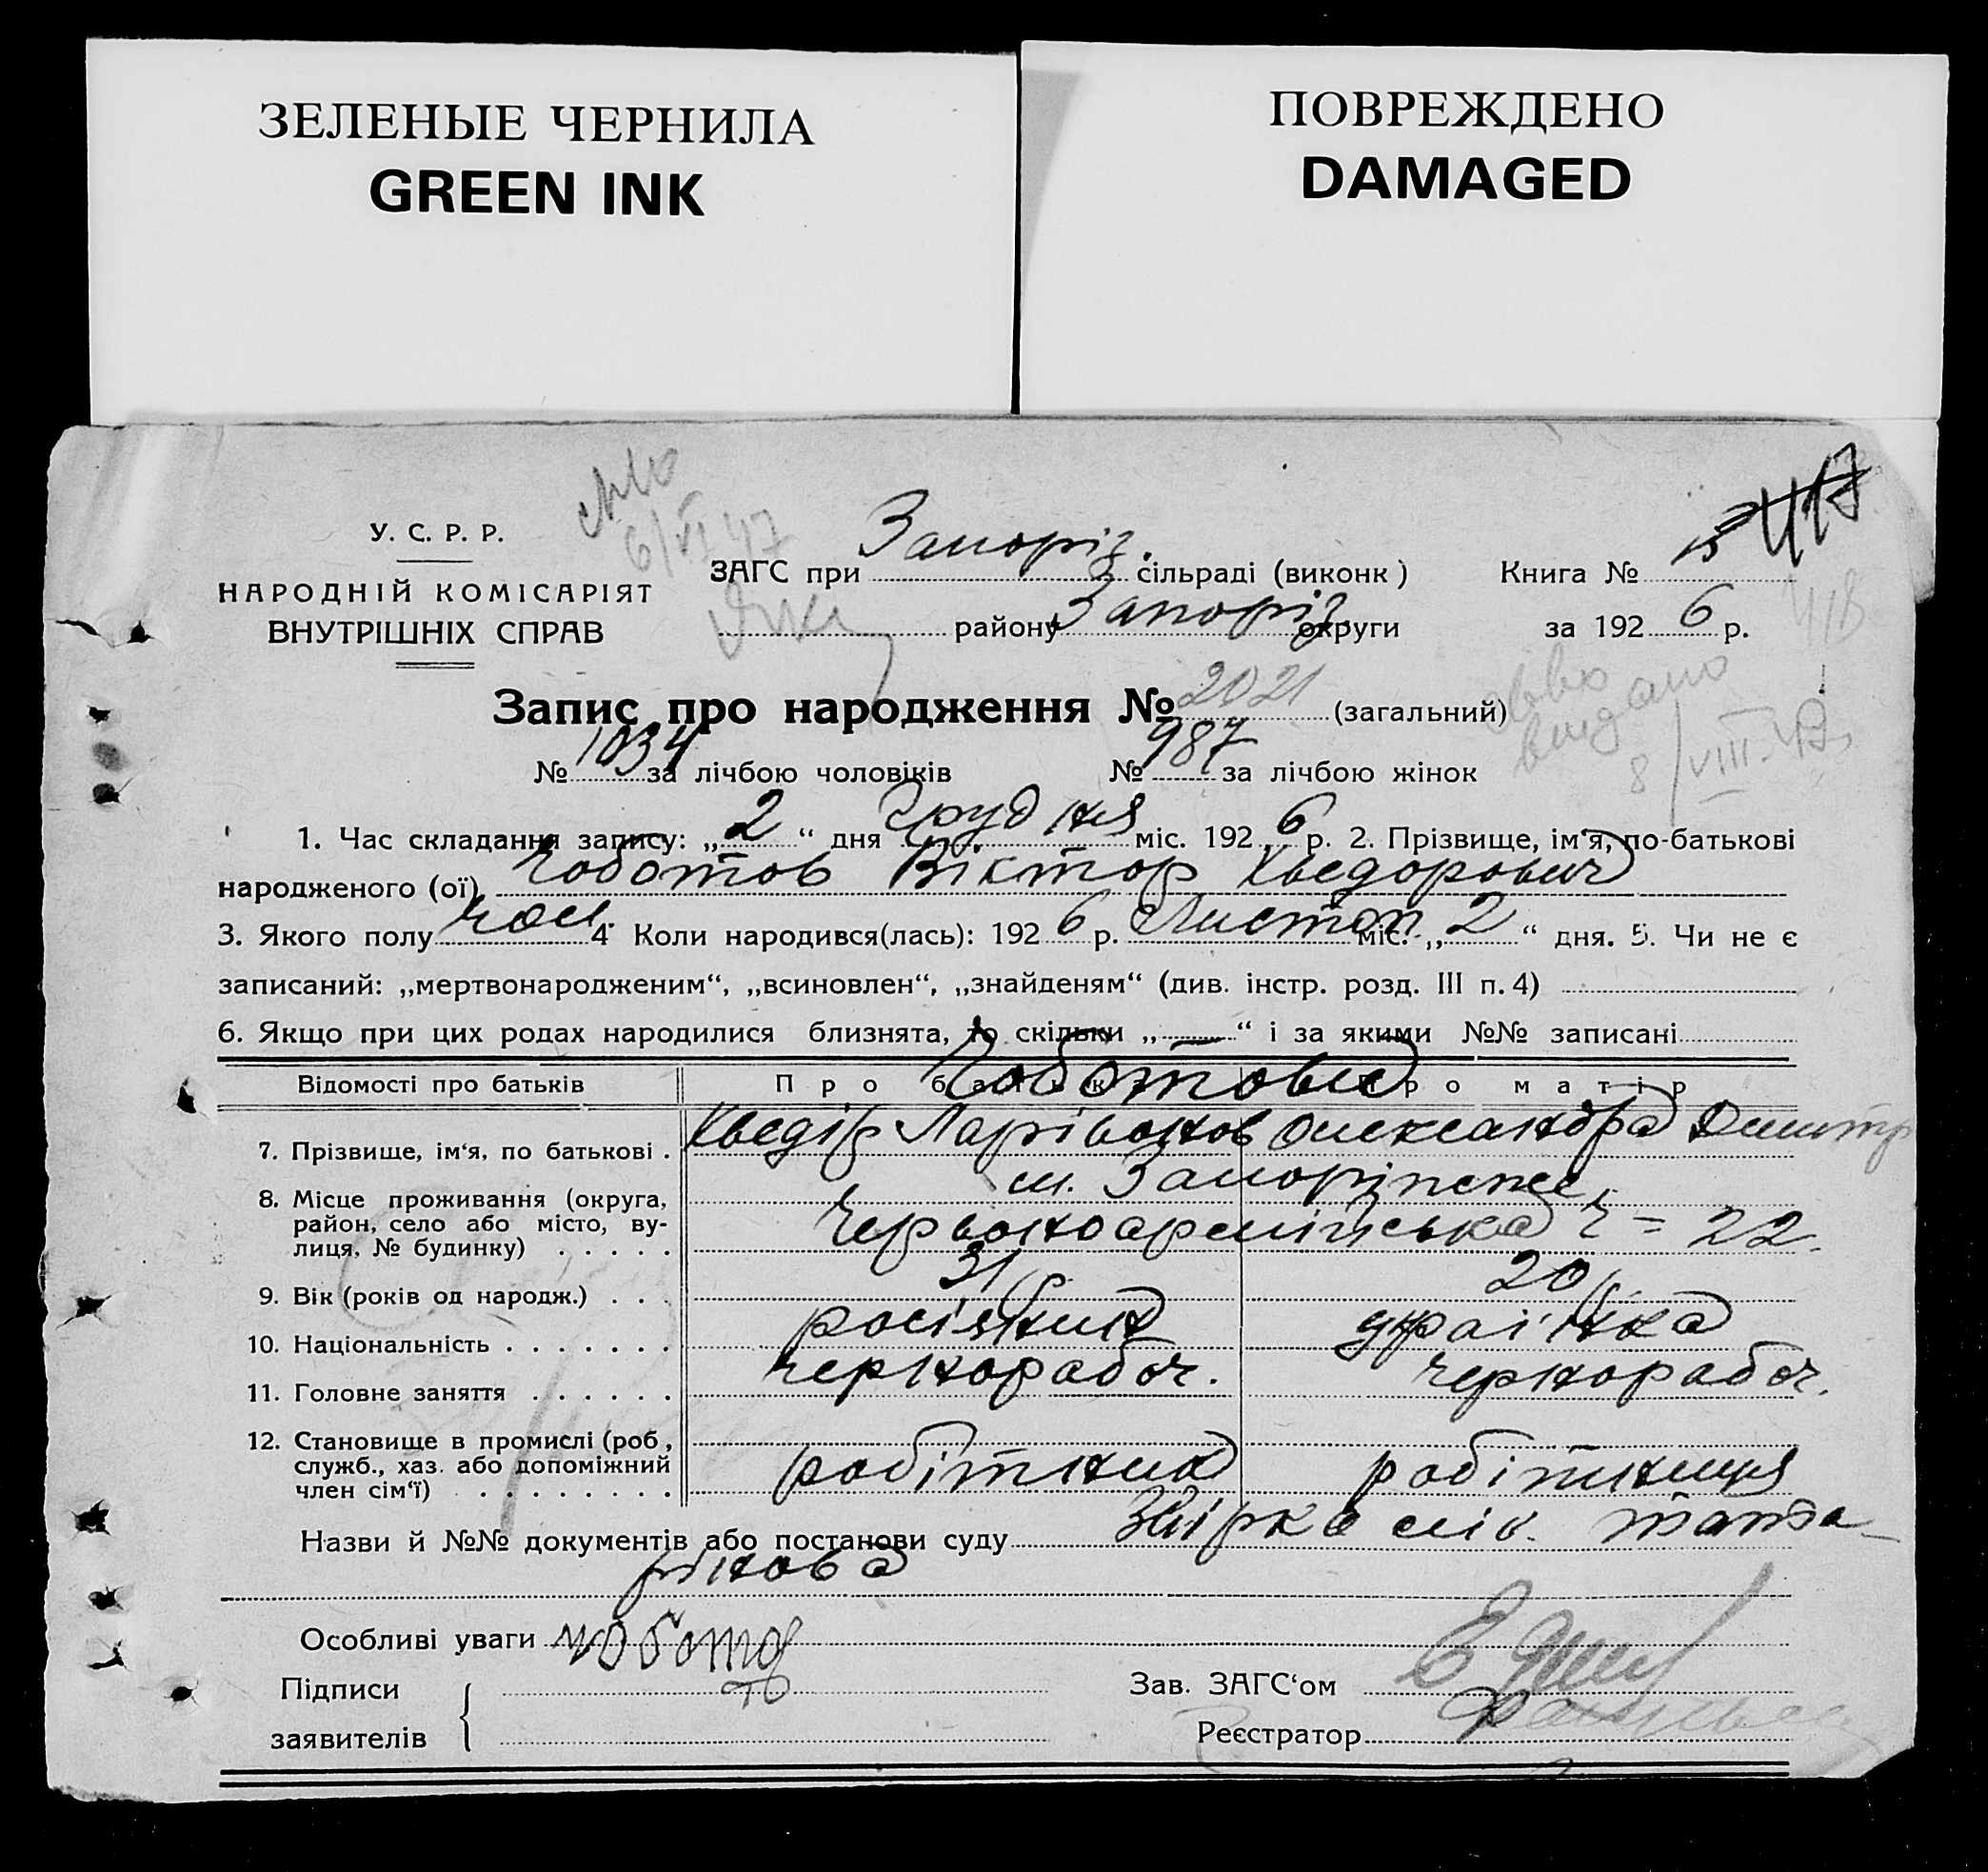 ЗЕЛЕНЫЕ ЧЕРНИЛА
GREEN INK
ПОВРЕЖДЕНО
DAMAGED
У. С. Р. Р.
НАРОДНІЙ КОМІСАРІЯТ
ВНУТРІШНІХ СПРАВ
6/VI 47
ЗАГС при Запоріз. сільраді (виконк)
району Запоріз. округи
Книга № 417
за 1926 р.
418
видано
8/VIII
Запис про народження № 2021 (загальний)
№ 1034 за лічбою чоловіків № 987 за лічбою жінок
1. Час складання запису: „2“ дня Грудня міс. 1926 р. 2. Прізвище, ім'я, по-батькові
народженого (ої) Чоботов Віктор Хведорович
3. Якого полу чол. 4 Коли народився(лась): 1926 р. Листоп. міс. „2“ дня. 5. Чи не є
записаний: „мертвонародженим“, „всиновлен“, „знайденям“ (див. інстр. розд. III п. 4)
6. Якщо при цих родах народилися близнята, то скільки „—“ і за якими №№ записані
Відомості про батьків Про батька Про матір
Чоботови
7. Прізвище, ім'я, по батькові . Хведір Ларівонов Олександра Димитр
8. Місце проживання (округа, м. Запоріжже,
район, село або місто, ву-
лиця, № будинку) . . . . . Червоноармійська ч = 22.
9. Вік (років од народж.) . . . 31 р. 20 р.
10. Національність . . . . . . . росіянин українка
11. Головне заняття . . . . . . чернорабоч. чернорабоч.
12. Становище в промислі (роб,
служб., хаз. або допоміжний
член сім'ї) . . . . . . . . робітник робітниця
Назви й №№ документів або постанови суду Звірка
Особливі уваги чобото
Підписи
заявителів
Зав. ЗАГС'ом
Реєстратор